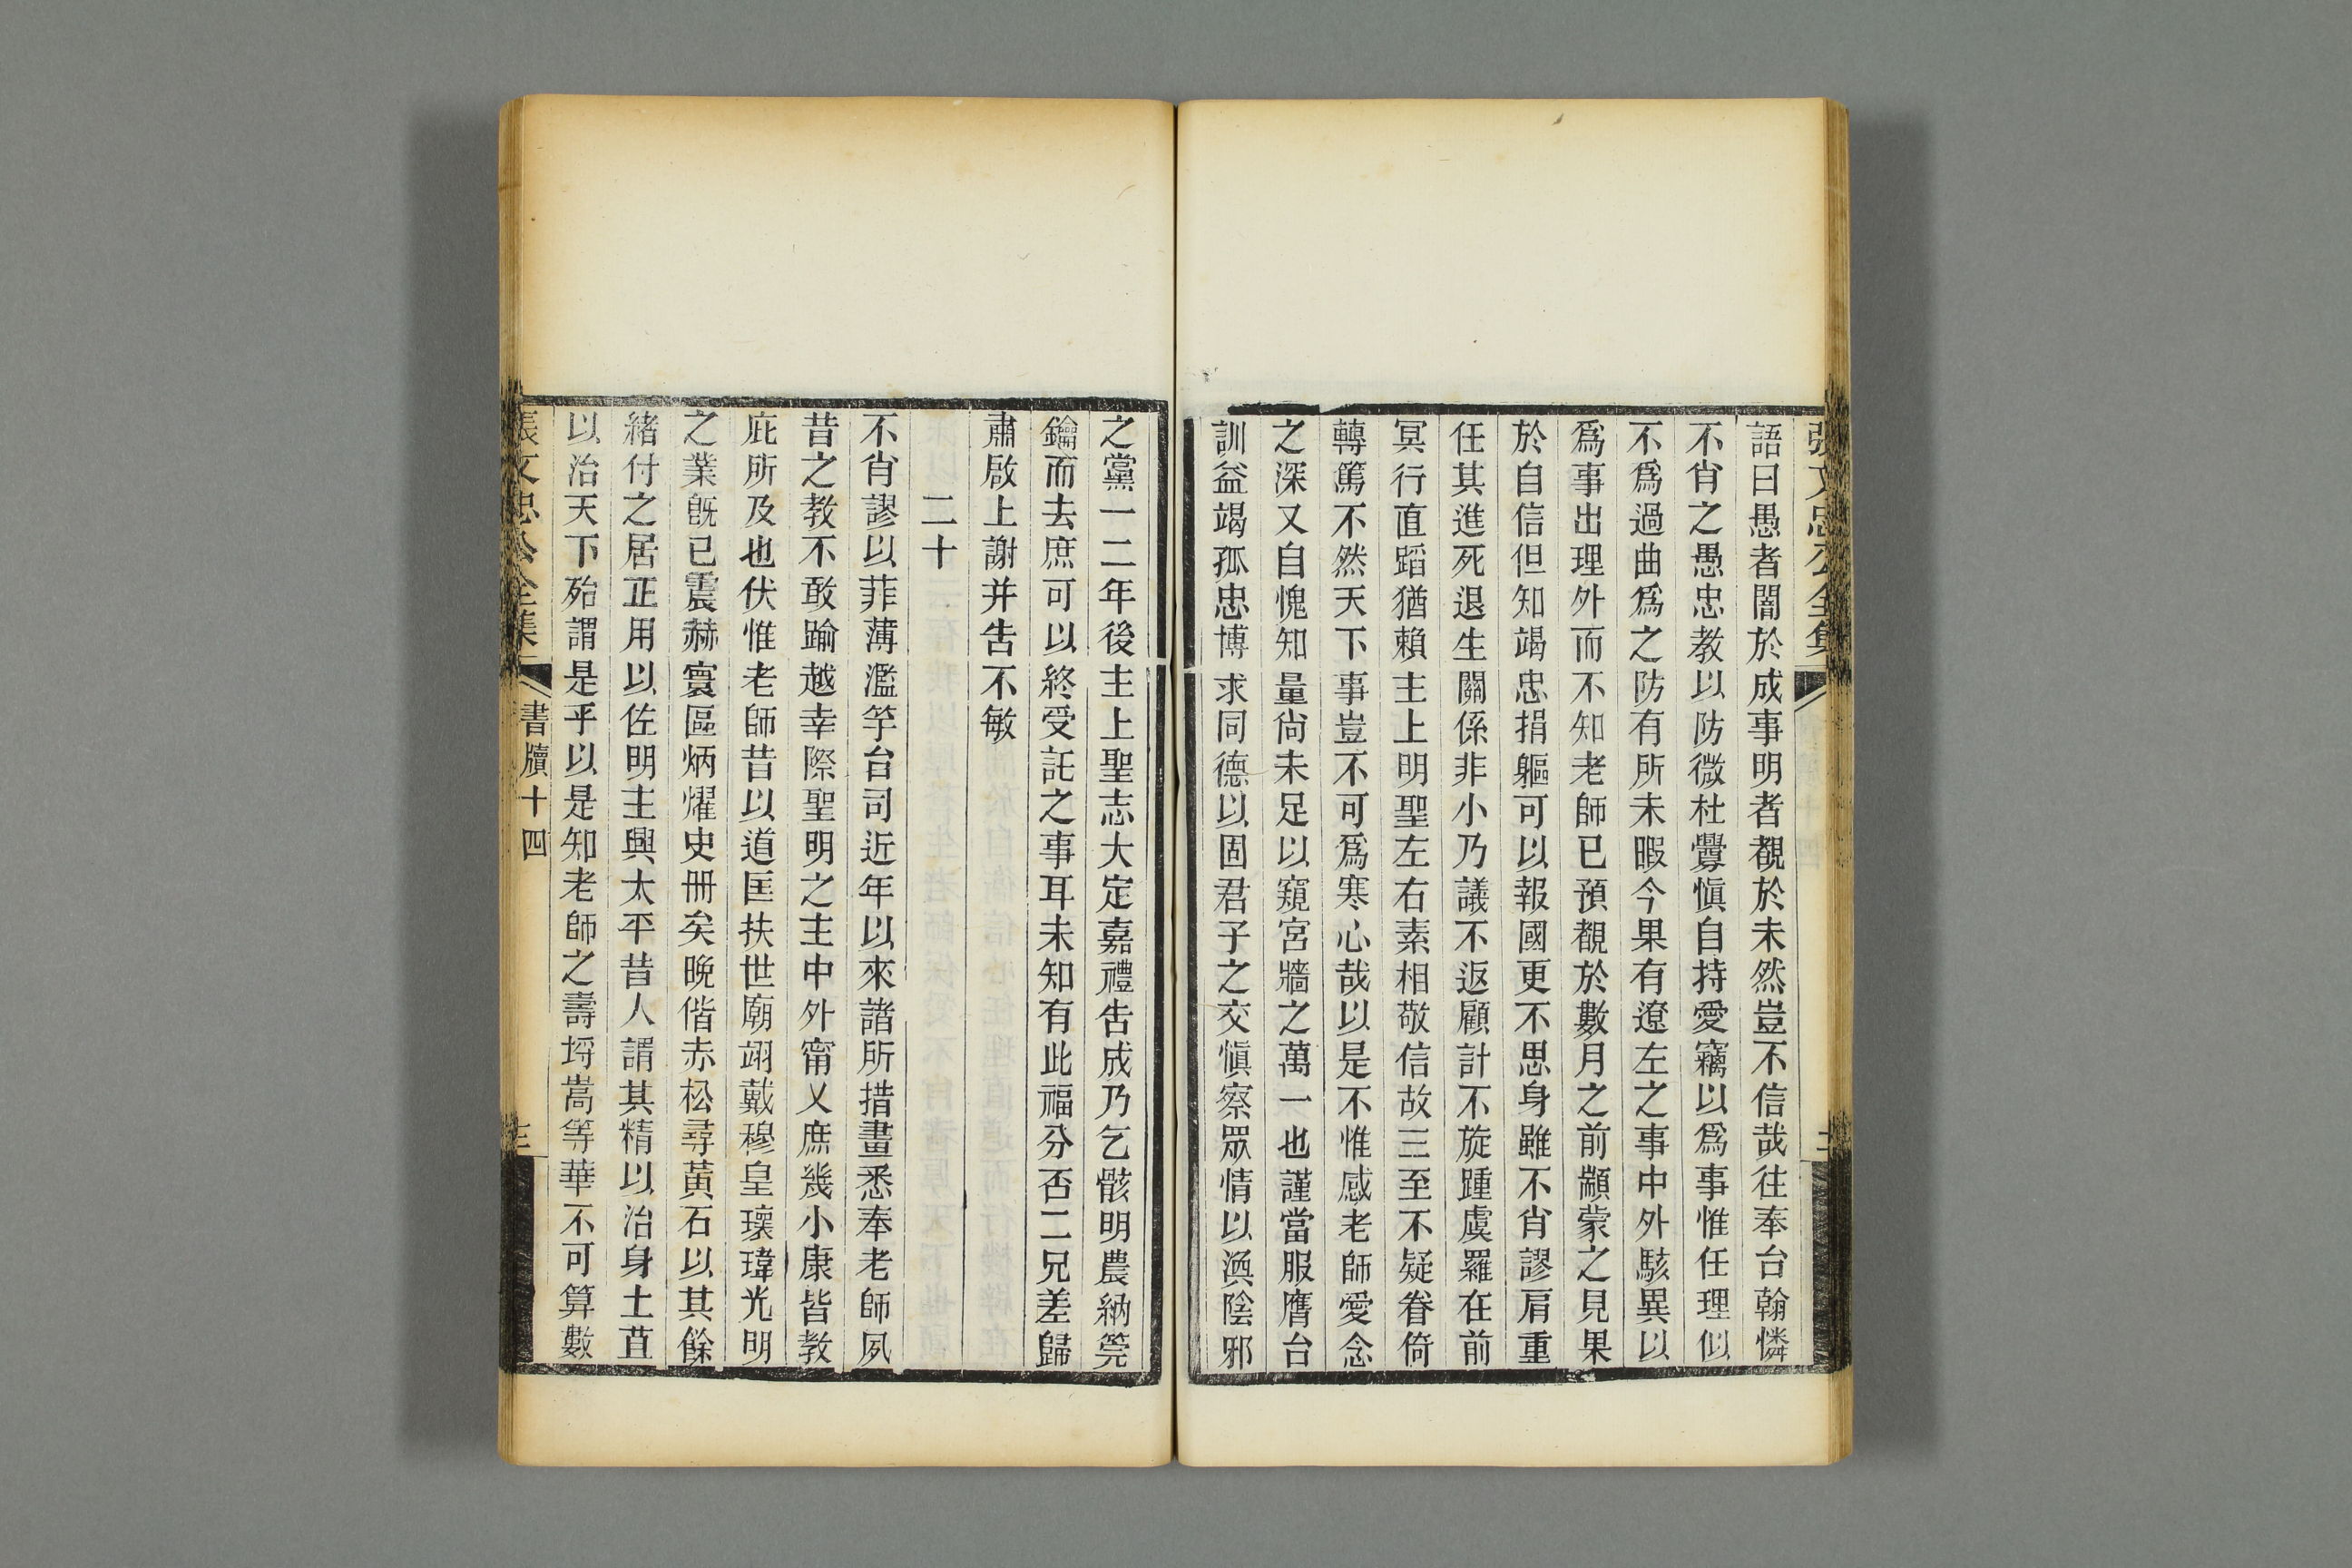 張文忠公全集
語曰愚者闇於成事明者覩於未然豈不信哉往奉台翰憐
不肖之愚忠教以防微杜釁愼自持愛竊以爲事惟任理似
不爲過曲爲之防有所未暇今果有遼左之事中外駭異以
爲事出理外而不知老師已預覩於數月之前顓蒙之見果
於自信但知竭忠捐軀可以報國更不思身雖不肖謬肩重
任其進死退生關係非小乃議不返顧計不旋踵虞羅在前
冥行直蹈猶賴主上明聖左右素相敬信故三至不疑眷倚
轉篤不然天下事豈不可爲寒心哉以是不惟感老師愛念
之深又自愧知量尙未足以窺宮牆之萬一也謹當服膺台
訓益竭孤忠博求同德以固君子之交愼察眾情以渙陰邪
之黨一二年後主上聖志大定嘉禮告成乃乞骸明農納筦
鑰而去庶可以終受託之事耳未知有此福分否二兄差歸
肅啟上謝并告不敏
二十
不肖謬以菲薄濫竽台司近年以來諸所措畫悉奉老師夙
昔之教不敢踰越幸際聖明之主中外甯乂庶幾小康皆教
庇所及也伏惟老師昔以道匡扶世廟翊戴穆皇瓌瑋光明
之業旣已震赫寰區炳燿史冊矣晩偕赤松尋黃石以其餘
緒付之居正用以佐明主興太平昔人謂其精以治身土苴
以治天下殆謂是乎以是知老師之壽埒嵩等華不可算數
張文忠公全集
書牘十四